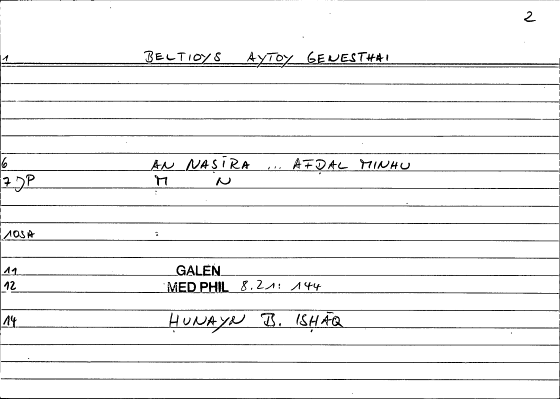 2
1 BELTIOYS AYTOY GENESTHAI
6 AN NAṢĪRA ... AFḌAL MINHU
7 JP M N
10SA :
11 GALEN
12 MED PHIL 8.21: 144
14 ḤUNAYN B. ISḤĀQ